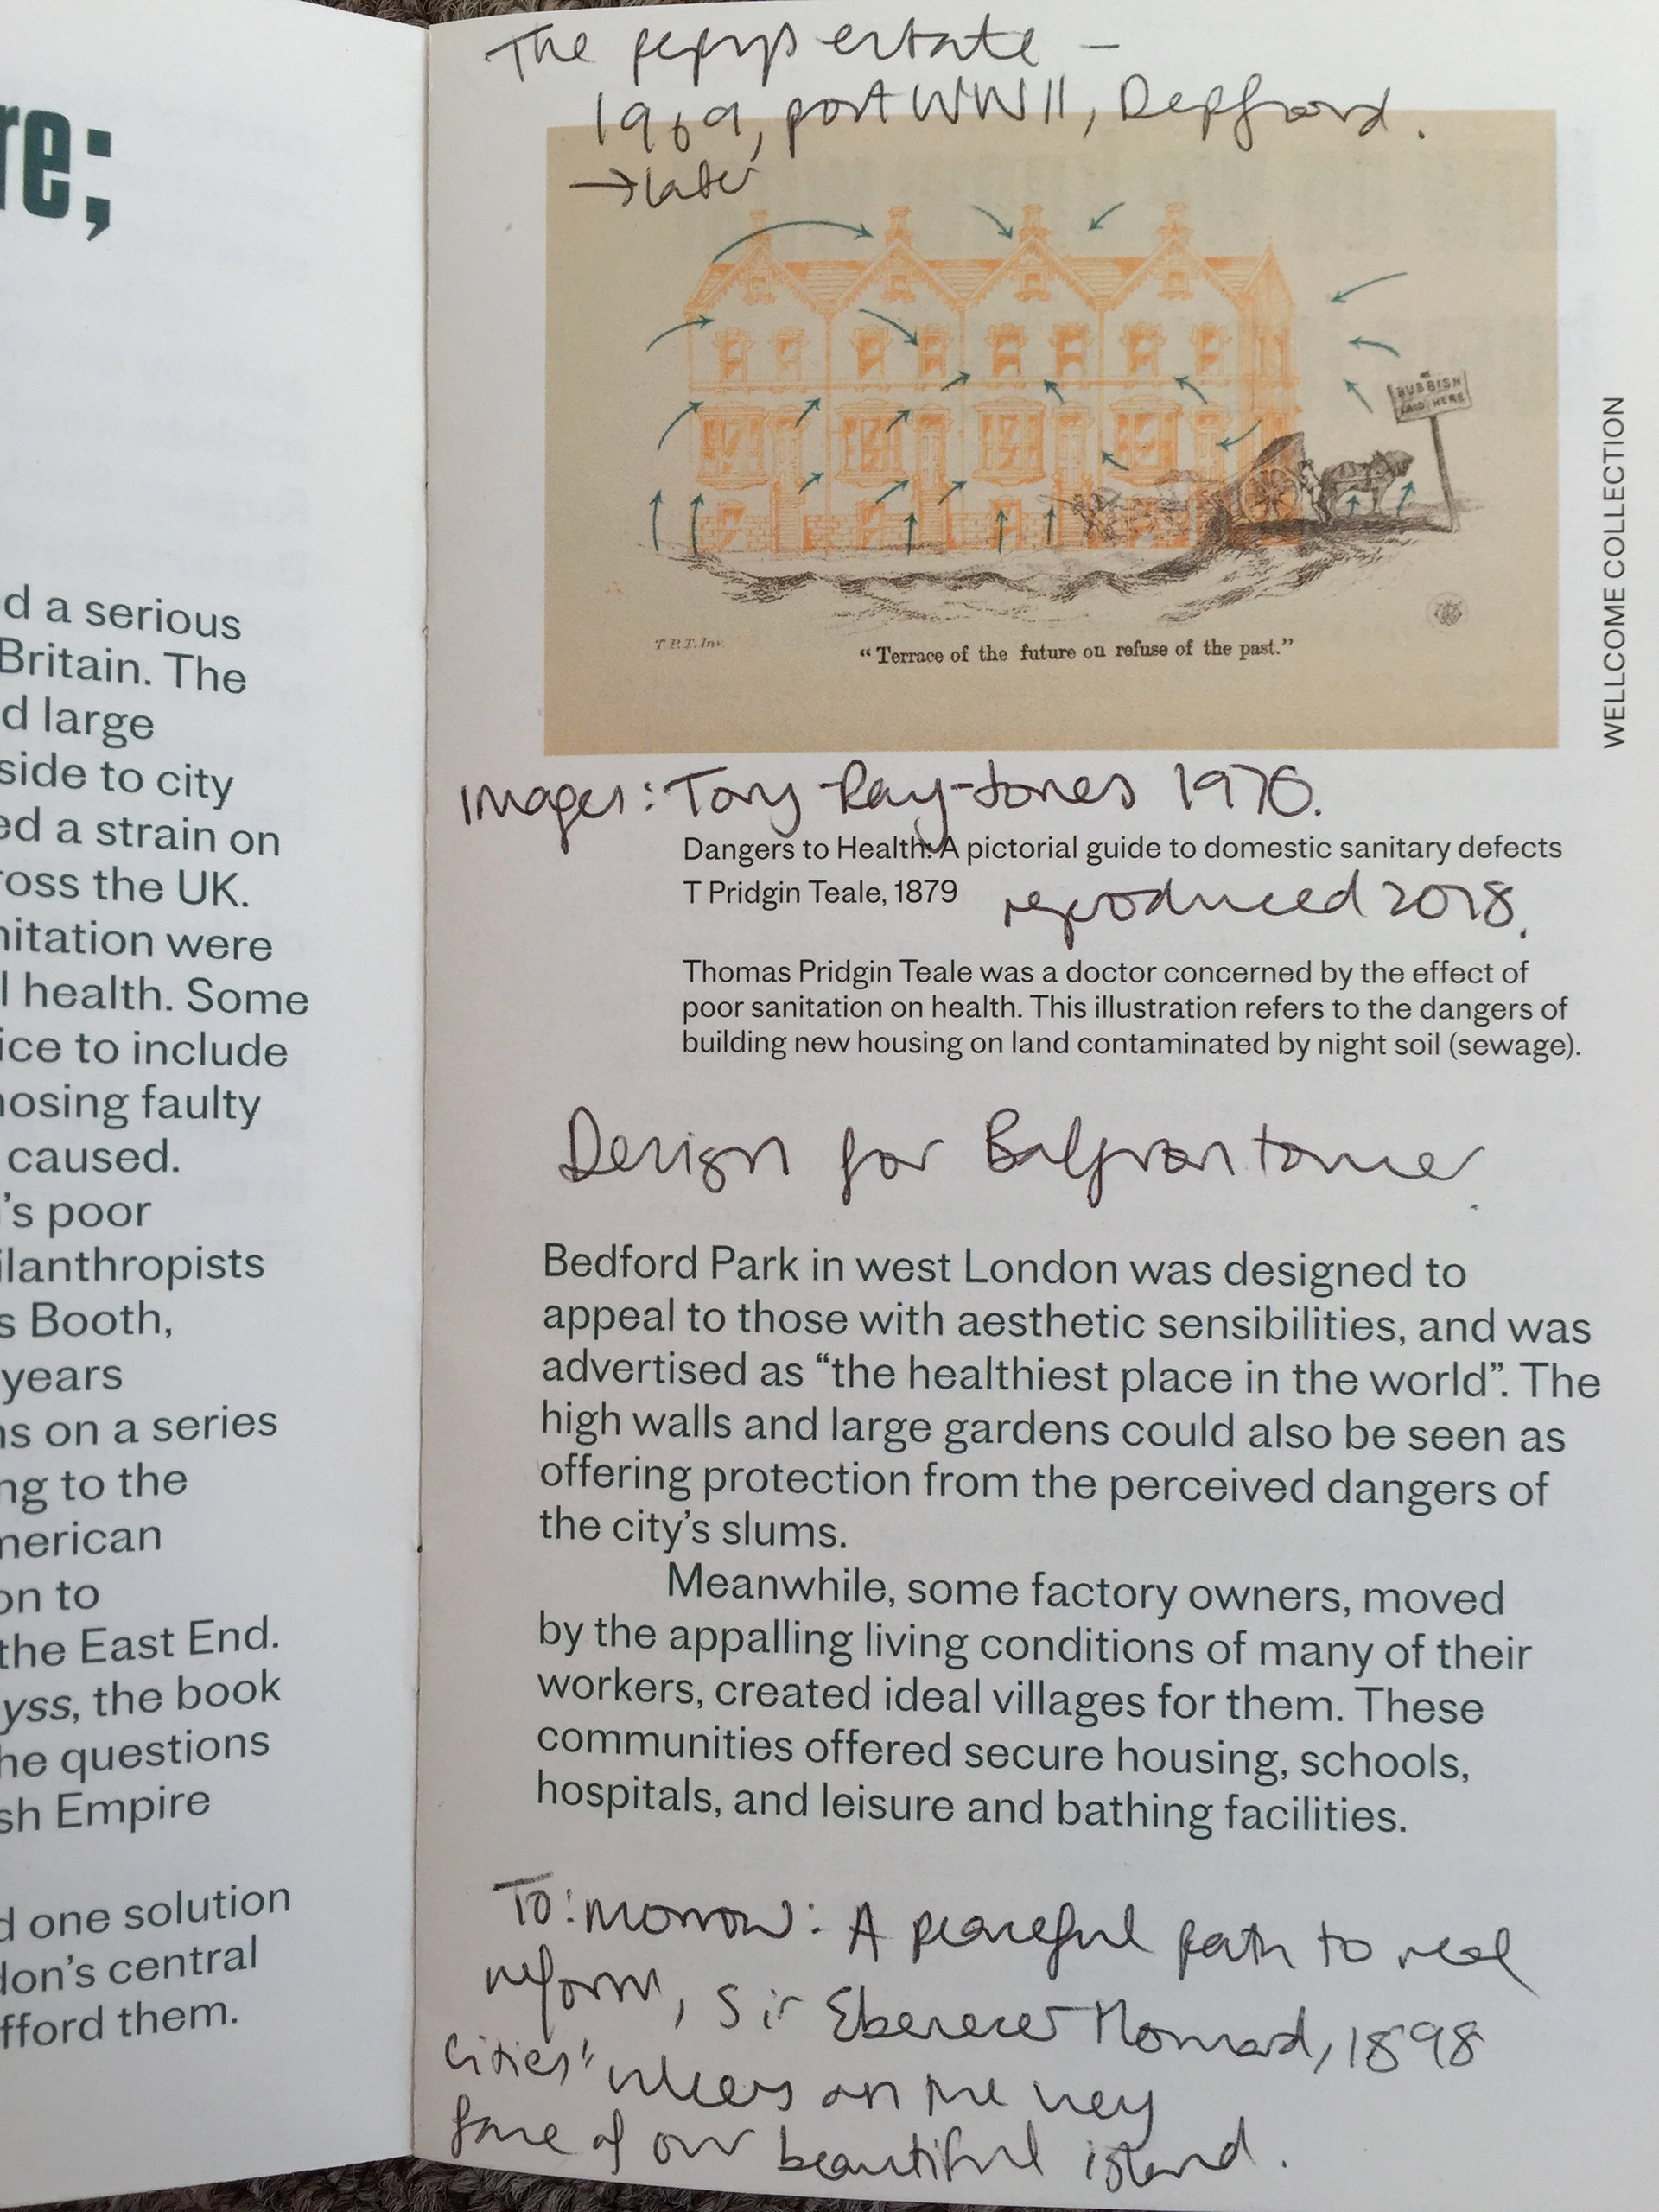 re;
d a serious
Britain. The
d large
side to city
ed a strain on
ross the UK.
nitation were
l health. Some
ice to include
nosing faulty
caused.
's poor
ilanthropists
s Booth,
years
ns on a series
ng to the
merican
on to
the East End.
yss, the book
he questions
sh Empire
d one solution
don's central
fford them.
The pepys estate –
1969, post WWII, Depford.
→ later
RUBBISH
LAID HERE
T.P.T. Inv.
“Terrace of the future on refuse of the past.”
WELLCOME COLLECTION
Images: Tony-Ray-Jones 1970.
Dangers to Health: A pictorial guide to domestic sanitary defects
T Pridgin Teale, 1879 reproduced 2018.
Thomas Pridgin Teale was a doctor concerned by the effect of
poor sanitation on health. This illustration refers to the dangers of
building new housing on land contaminated by night soil (sewage).
Design for Balfron tower.
Bedford Park in west London was designed to
appeal to those with aesthetic sensibilities, and was
advertised as “the healthiest place in the world”. The
high walls and large gardens could also be seen as
offering protection from the perceived dangers of
the city’s slums.
Meanwhile, some factory owners, moved
by the appalling living conditions of many of their
workers, created ideal villages for them. These
communities offered secure housing, schools,
hospitals, and leisure and bathing facilities.
To:morrow: A peaceful path to real
reform, Sir Ebenezer Howard, 1898
Cities' ulcers on the very
face of our beautiful island.